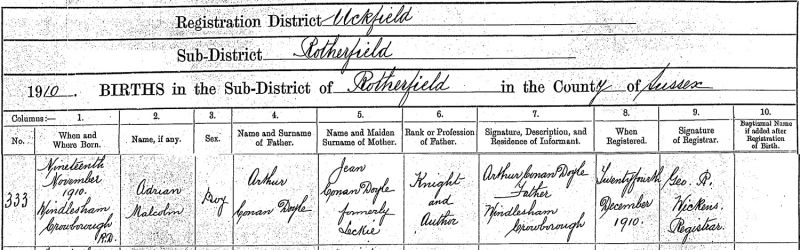 Registration District Uckfield
Sub-District Rotherfield
1910. BIRTHS in the Sub-District of Rotherfield in the County of Sussex
Columns:— 1. 2. 3. 4. 5. 6. 7. 8. 9. 10.
No. When and Where Born. Name, if any. Sex. Name and Surname of Father. Name and Maiden Surname of Mother. Rank or Profession of Father. Signature, Description, and Residence of Informant. When Registered. Signature of Registrar. Baptismal Name if added after Registration of Birth.
333
Nineteenth
November
1910.
Windlesham
Crowborough
R.D.
Adrian
Malcolm
Boy
Arthur
Conan Doyle
Jean
Conan Doyle
formerly
Leckie
Knight
and
Author
Arthur Conan Doyle
Father
Windlesham
Crowborough
Twenty fourth
December
1910.
Geo. R.
Wickens
Registrar.